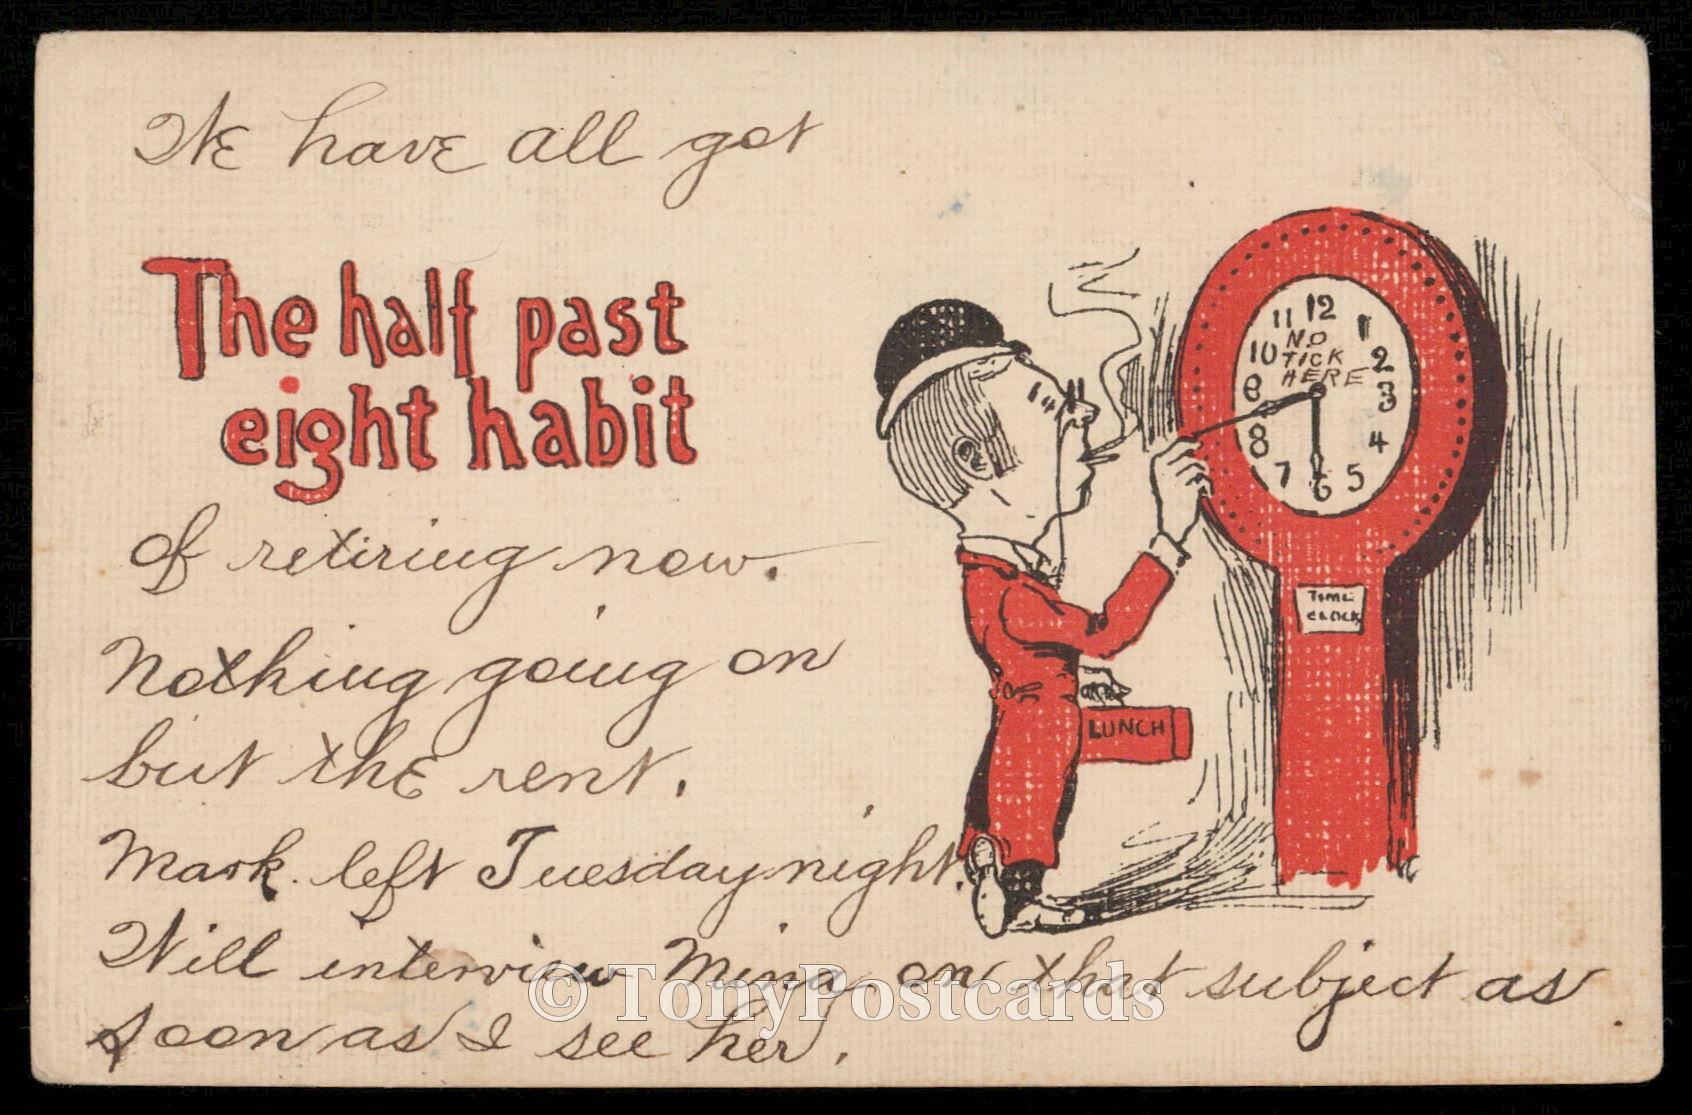 We have all got
The half past
eight habit
of retiring now.
Nothing going on
but the rent.
Mark left Tuesday night.
Will interview Mina on that subject as
soon as I see her.
12
11 1
NO
10 TICK 2
HERE
9 3
8 4
7 5
6
TIME
CLOCK
LUNCH
© TonyPostcards